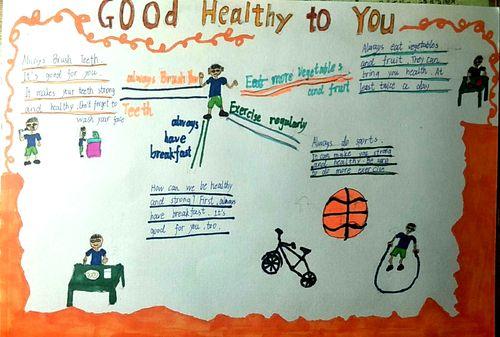 GOOd Healthy to You
Always Brush Teeth.
It's good for you.
It makes your teeth strong
and healthy. Don't forget to
wash your face
always Brush Your
Teeth
Eat more vegetables
and fruit
Exercise regularly
always
have
breakfast
Always eat vegetables
and fruit. They can
bring you health. At
least twice a day
Always do sports.
It can make you strong
and healthy. Be sure
to do more exercise.
How can we be healthy
and strong? First, always
have breakfast. It's
good for you, too.